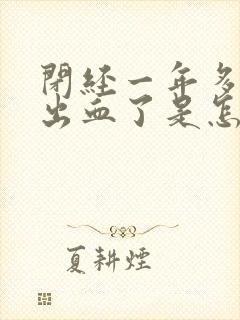 閉経一年多
出血了是怎
夏耕煙